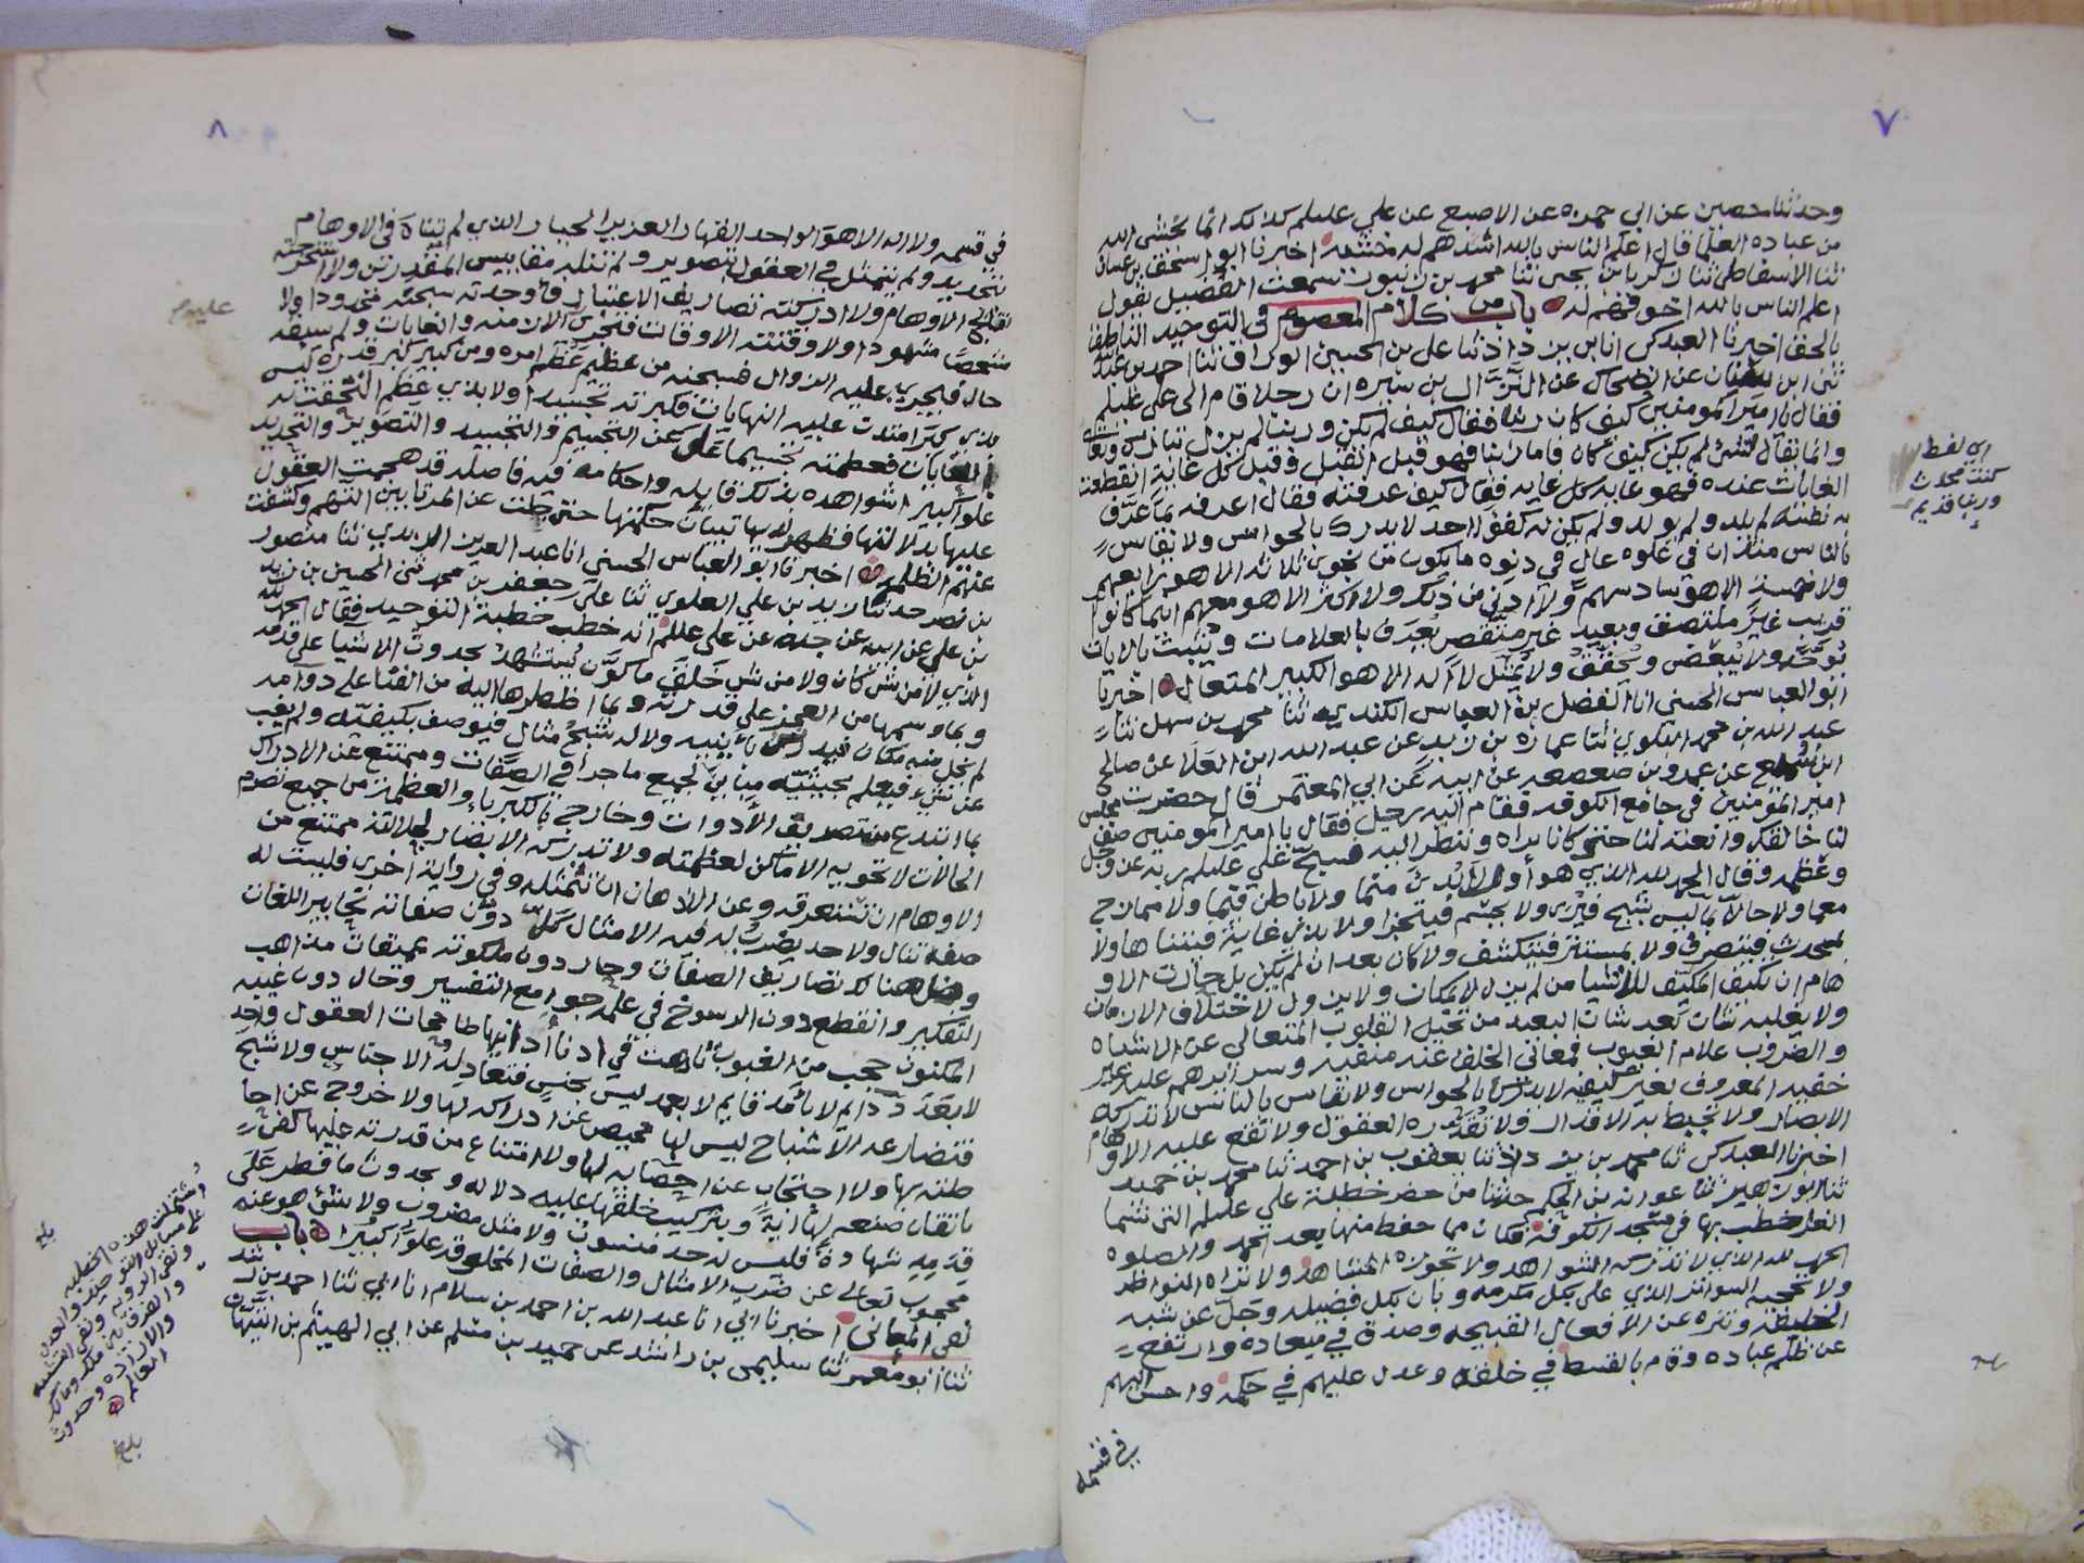 ٧
وحدثنا حصين عن ابي حمزه عن الاصبغ عن علي عليلم كذلك انما يخشى الله
من عباده العلما قال اعلم الناس بالله اشدهم له خشية اخبرنا ابو اسحق بن غسان
ثنا الاسفاطي ثنا زكريا بن يحيى ثنا محمد بن زنبور سمعت الفضيل يقول
اعلم الناس بالله اخوفهم له باب من كلام المعصوم في التوحيد الناطق
بالحق اخبرنا العبدكي انا بن يزداذ ثنا علي بن الحسين الوراق ثنا احمد بن عبد
ثنى ابن عن الضحاك عن النزال بن سبره ان رجلا قام الى علي عليلم
فقال يا امير المومنين كيف كان ربنا فقال كيف لم يكن وربنا لم يزل تبارك وتعالى
وانما يقال لشئ لم يكن كيف كان فاما ربنا فهو قبل القبل وقبل كل غاية انقطعت
الغايات عنده فهو غاية كل غايه فقال كيف عرفته فقال اعرفه بما عرّف
به نفسه لم يلد ولم يولد ولم يكن له كفؤا احد لا يدرك بالحواس ولا يقاس
بالناس متدان في علوه عال في دنوه ما يكون من نجوى ثلاثة الا هو رابعهم
ولا خمسة الا هو سادسهم ولا ادنى من ذلك ولا اكثر الا هو معهم اينما كانوا
قريب غير ملتصق وبعيد غير متقص يعرف بالعلامات ويثبت بالايات
يوحّد ولا يبعّض ويحقّق ولا يمثّل لا اله الا هو الكبير المتعال اخبرنا
ابو العباس الحسني انا الفضل بن العباس الكندي ثنا محمد بن سهل ثنا
عبد الله بن محمد البلوي ثنا عمارة بن زيد عن عبد الله ابن العلا عن صالح
ابن سميع عن عمرو بن صعصعه عن ابيه عن ابي المعتمر قال حضرت مجلس
امير المومنين في جامع الكوفه فقام اليه رجل فقال يا امير المومنين صف
لنا خالقك وانعته لنا حتى كانا نراه وننظر اليه فسبح علي عليلم ربه عز وجل
وعظمه وقال الحمد لله الذي هو أول لا بُدئ مما ولا باطن فيما ولا ممازج
معما ولا حالّ بما ليس بشبح فيرى ولا بجسم فيتجزا ولا بذي غاية فيتناها ولا
بمحدث فيتصرف ولا بمستتر فيتكشف ولا كان بعد ان لم يكن بل حارت الاو
هام ان تكيف المكيّف للاشيا من لم يزل لا بمكان ولا يزول لاختلاف الازمان
ولا يقلبه شان بعد شان البعيد من تخيل القلوب المتعالي عن الاشباه
والضروب علام الغيوب فمعاني الخلق عنه منفيه وسرائرهم عليه غير
خفيه المعروف بغير كيفيه لا يدرك بالحواس ولا يقاس بالناس لا تدركه
الابصار ولا تحيط به الاقدار ولا تقدّره العقول ولا تقع عليه الاوهام
اخبرنا العبدكي ثنا محمد بن يزداذ ثنا يعقوب بن احمد ثنا محمد بن حميد
ثنا ثنا عوانه بن الحكم حدثنا من حضر خطبة علي عليلم التي تسما
الغرا خطب بها في مسجد الكوفة فكان مما حفظ منها بعد الحمد والصلوه
الحمد لله الذي لا تدركه الشواهد ولا تحويه المشاهد ولا تراه النواظر
ولا تحجبه السواتر الذي على بكل مكرمه وبان بكل فضيله وجل عن شبه
الخليقة وتنزه عن الافعال القبيحه وصدق في ميعاده وارتفع
عن ظلم عباده وقام بالقسط في خلقه وعدل عليهم في حكمه واحسن اليهم
في قسمه
اي لفظ
كنت محدث
وربنا قديم
٨
في قسمه ولا اله الا هو الواحد القهار العزيز الجبار الذي لم يتناه في الاوهام
بتحديد ولم يتمثل في العقول بتصوير ولم تنله مقاييس المقدرين ولا استخرجته
نتايج الاوهام ولا ادركته تصاريف الاعتبار فاوجدته سبحنه محدودا ولا
شخصا مشهودا ولا وقتته الاوقات فتجري الازمنه والغايات ولم يسبقه
حال فيجري عليه الزوال فسبحنه من عظيم عظم امره ومن كبير كبر قدره ليس
بذي كبر امتدت عليه النهايات فكبرته تجسيدا ولا بذي عظم التحقت به
الغايات فعظمته تجسيما على عن التجسيم والتجسيد والتصوير والتحديد
علوا كبيرا شواهده بذلك قايله واحكامه فيه فاصله قد هجمت العقول
عليها بدلالتها فظهر لديها تبيان حكمتها حتى جلت عن المرتابين التهم وكشفت
عنهم الظلم اخبرنا ابو العباس الحسني انا عبد العزيز الزيدي ثنا منصور
بن نصر حدثنا زيد بن علي العلوي ثنا علي بن جعفر بن محمد ثنى الحسين بن زيد
بن علي عن ابيه عن جده عن علي عليلم انه خطب خطبة التوحيد فقال الحمد لله
الذي لا من شئ كان ولا من شئ خلق ما كوّن يستشهد بحدوث الاشيا على قدمه
وبما وسمها من العجز على قدرته وبما اظطرها اليه من الفنا على دوامه
لم يخل منه مكان فيدرك بأينيه ولا له شبح مثال فيوصف بكيفيّه ولم يغب
عن شئ فيعلم بحيثيّه مباين لجميع ما جرا في الصفات وممتنع عن الادراك
بما ابتدع من تصريف الأدوات وخارج بالكبرياء والعظمة من جميع تصرم
الحالات لا تحويه الاماكن لعظمته ولا تدركه الابصار لجلالته ممتنع من
الاوهام ان تستعرقه وعن الاذهان ان تتمثله وفي رواية اخرى فليست له
صفة تنال ولا حد يضرب له فيه الامثال كلّ دون صفاته تحابير اللغات
وضل هنالك تصاريف الصفات وحار دون ملكوته عميقات مذاهب
التفكير وانقطع دون الرسوخ في علمه جوامع التفسير وحال دون غيبه
المكنون حجب من الغيوب تاهت في ادنا أدانيها طامحات العقول واحد
لا بعَدَد دايم لا بأمد قايم لا بعمد ليس بجنسٍ فتعادله الاجناس ولا شبح
فتضارعه الاشباح ليس لها محيص عن ادراكه لها ولا خروج عن احا
طته بها ولا احتجاب عن احصايه لها ولا امتناع من قدرته عليها كفى
باتقان صنعه لها ايةً وبتركيب خلقها عليه دلاله وبحدوث ما فطر عَلَى
قِدَمِه شهادةً فليس له حد منسوب ولا مثل مضروب ولا شئ هو عنه
محجوب تعالى عن ضرب الامثال والصفات المخلوقه علوا كبيرا باب
نفي المعاني اخبرنا ابي انا عبد الله بن احمد بن سلام انا ابي ثنا احمد بن
ثنا أبو معمر ثنا سليمن بن راشد عن حميد بن مسلم عن ابي الهيثم بن التيهان
عليلم
اشتملت هذه الخطبه
على مسايل التوحيد والعدل
ونفي الرويه ونفي التشبيه
والارادة وحدوث
العالم
بلغ
بلغ